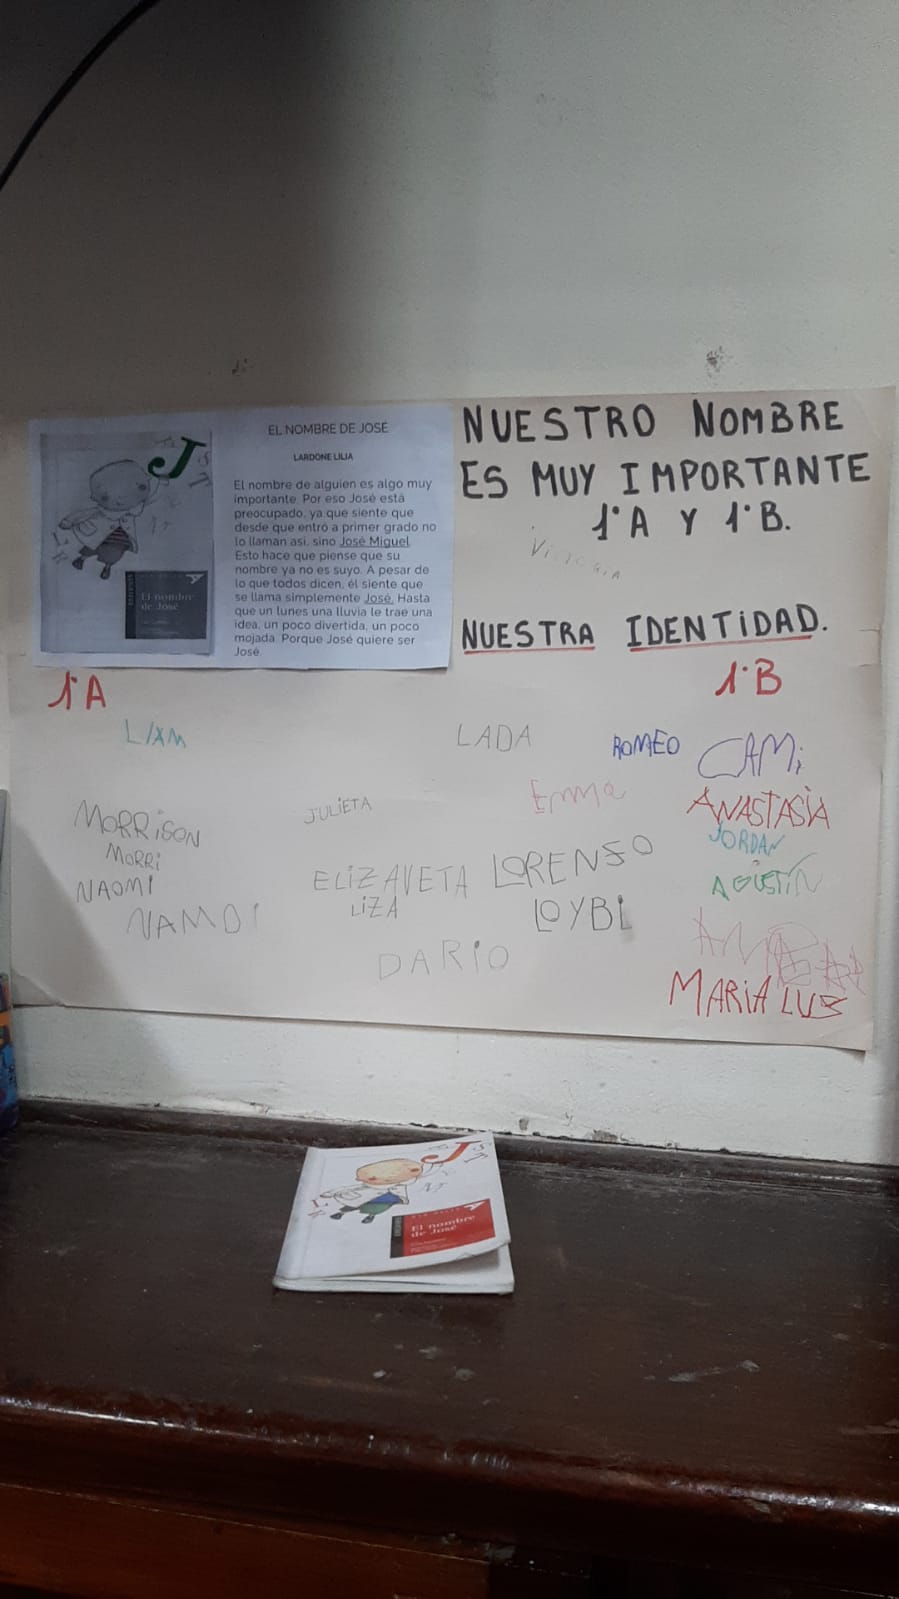 EL NOMBRE DE JOSÉ
LARDONE LILIA
El nombre de alguien es algo muy
importante. Por eso José está
preocupado, ya que siente que
desde que entró a primer grado no
lo llaman asi, sino José Miguel.
Esto hace que piense que su
nombre ya no es suyo. A pesar de
lo que todos dicen, él siente que
se llama simplemente José. Hasta
que un lunes una lluvia le trae una
idea, un poco divertida, un poco
mojada. Porque José quiere ser
José.
J
El nombre
de José
NUESTRO NOMBRE
ES MUY IMPORTANTE
1°A Y 1°B.
NUESTRA IDENTIDAD.
1°A
1°B
LIAM
LADA
ROMEO
CAMi
MORRiSON
MORRi
NAOMI
NAMOI
JULiETA
Emma
ANASTASiA
JORDAN
ELiZAVETA
LiZA
LORENSO
LOYBI
AGUSTÍN
DARiO
MARiA LUS
J
El nombre
de José